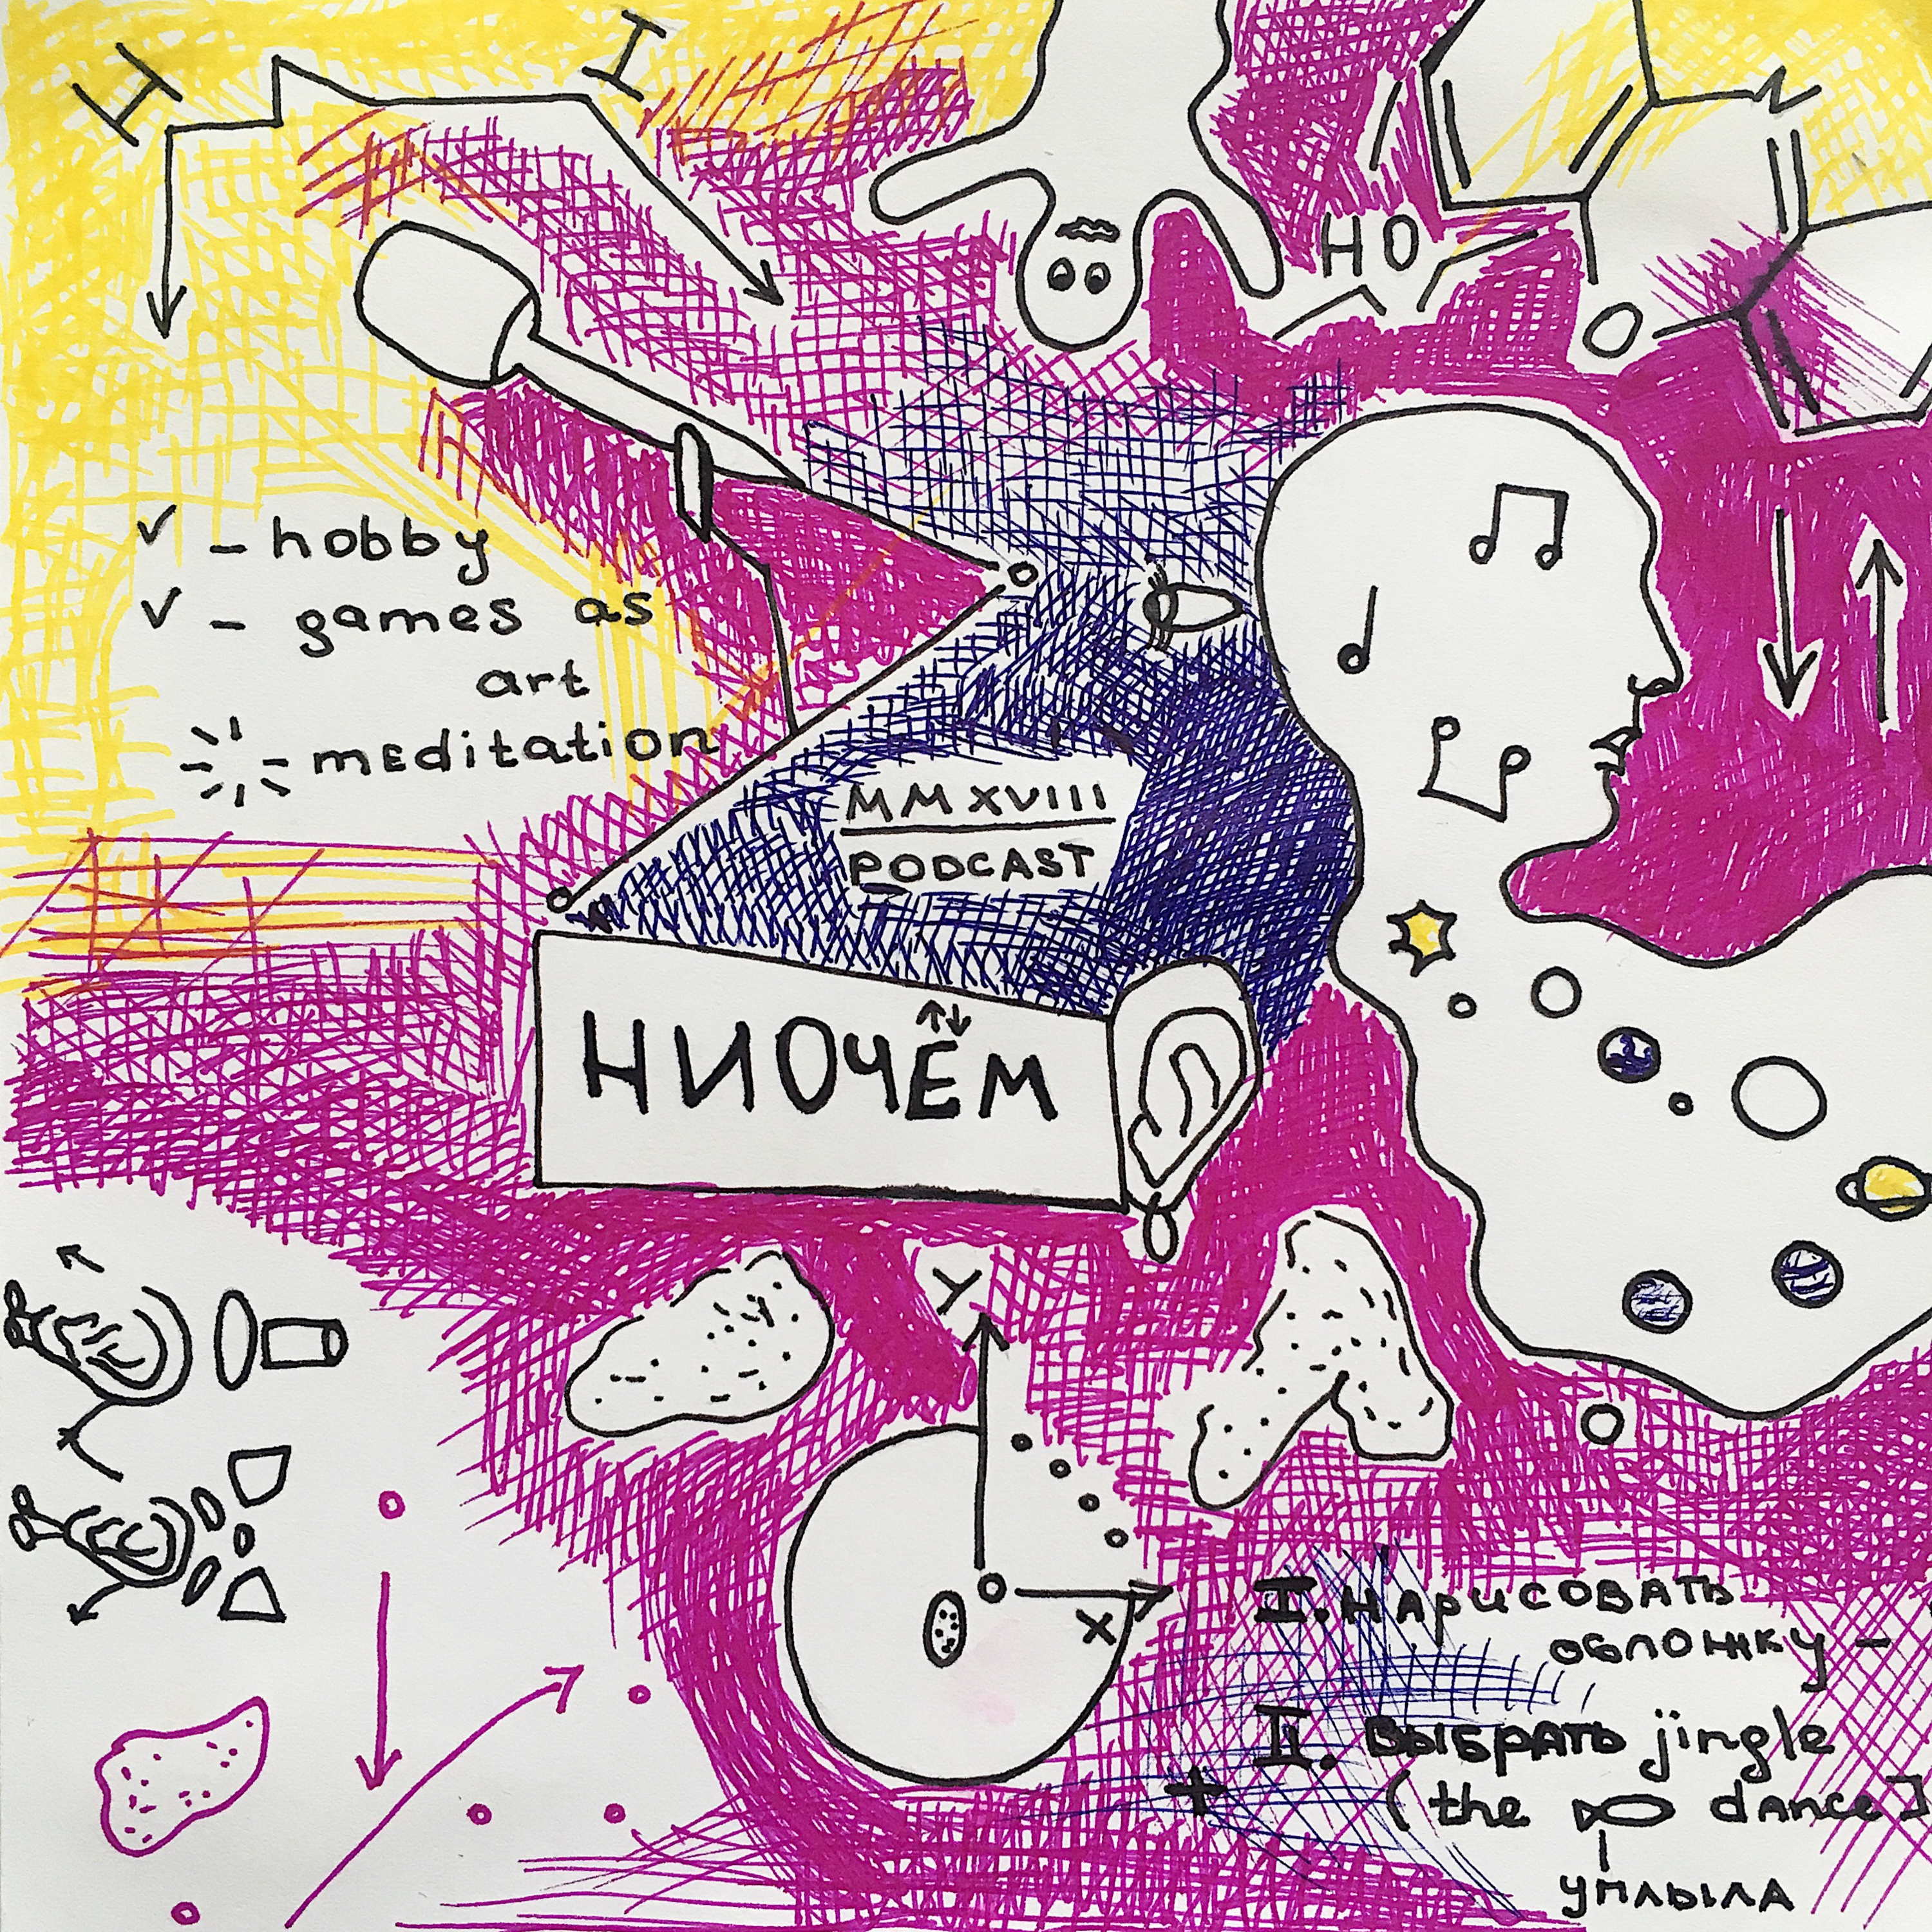 H I
N
HO
O
✓ - hobby
✓ - games as
art
- meditation
MMXVIII
PODCAST
НИОЧЁМ
Y
X
I. НАРИСОВАТЬ
ОБЛОЖКУ -
II. ВЫБРАТЬ jingle
+ (the dance]
УПЛЫЛА